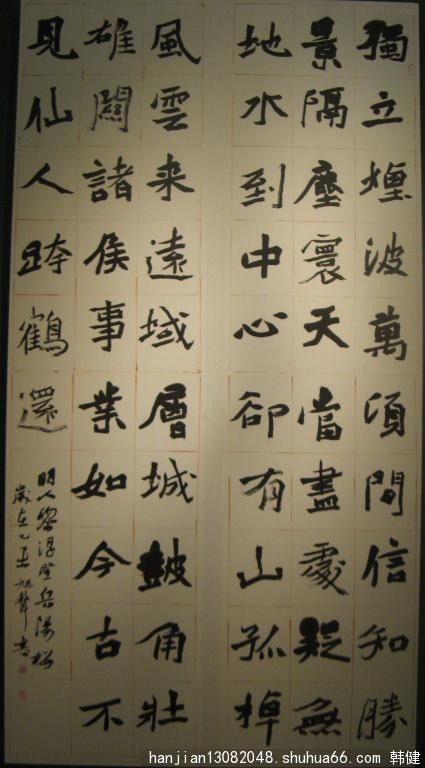 獨立煙波萬頃間信知勝
景隔塵寰天當盡處疑無
地水到中心卻有山孤棹
風雲来遠域層城鼓角壯
雄關諸侯事業如今古不
見仙人跨鶴還
明人黎淳登岳陽樓
歲在乙 書
hanjian13082048.shuhua66.com 韩健